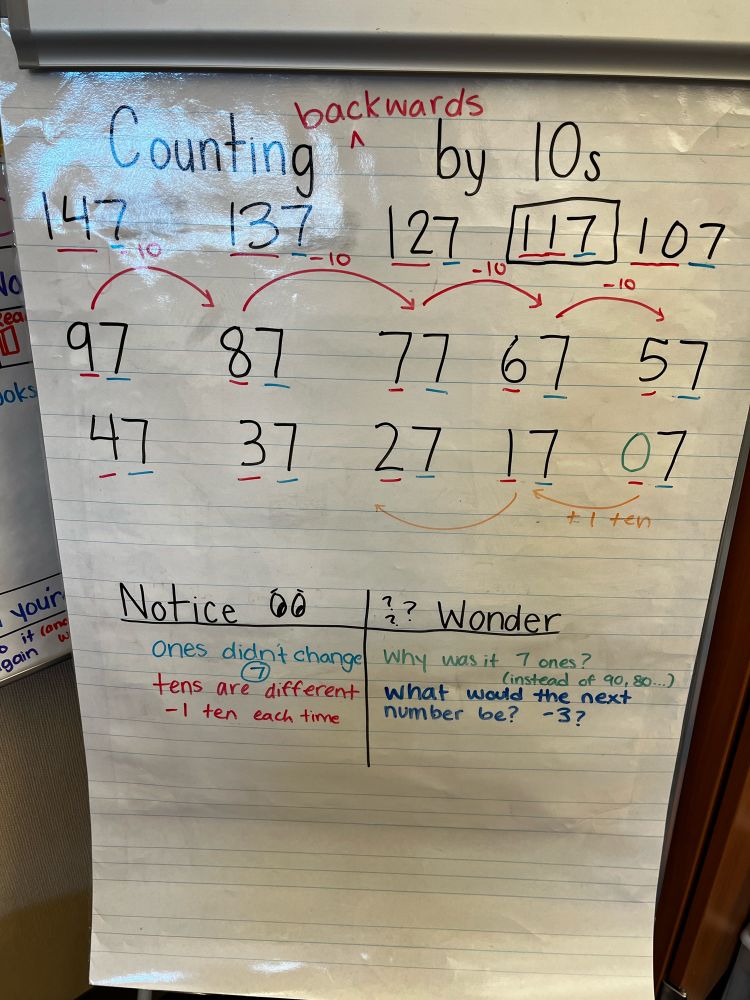 backwards
Counting ^ by 10s
147 137 127 117 107
-10 -10 -10 -10
97 87 77 67 57
47 37 27 17 07
+1 ten
Notice ?? Wonder
ones didn't change
7
tens are different
-1 ten each time
Why was it 7 ones?
(instead of 90, 80...)
what would the next
number be? -3?
No
Rea
ooks
your
o it (and
gain w